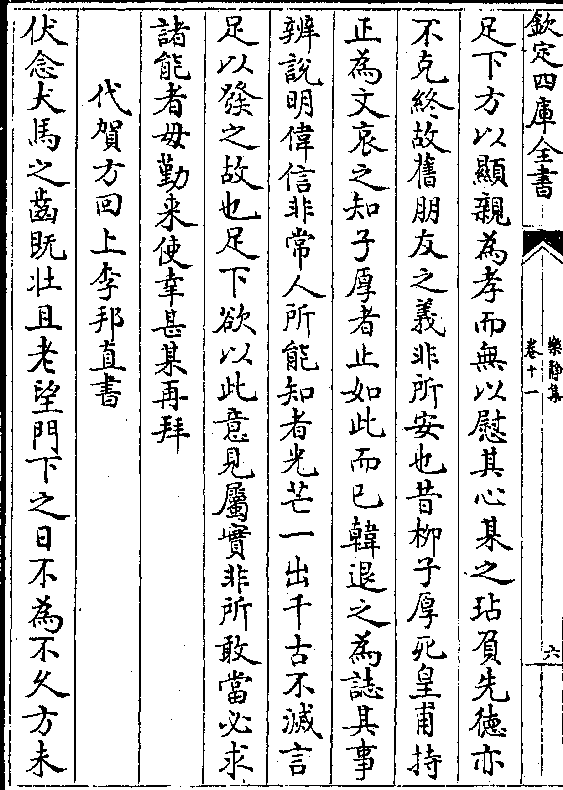 欽定四庫全書
樂靜集
卷十一
六
足下方以顯親為孝而無以慰其心某之玷頁先徳亦
不克終故舊朋友之義非所安也昔栁子厚死皇甫持
正為文哀之知子厚者止如此而已韓退之為誌其事
辨說明偉信非常人所能知者光芒一出千古不滅言
足以發之故也足下欲以此意見屬實非所敢當必求
諸能者毋勤来使幸甚某再拜
代賀方回上李邦直書
伏念犬馬之齒既壯且老望門下之日不為不久方未